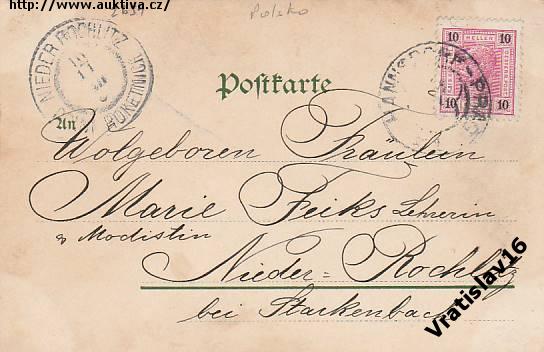 http://www.auktiva.cz/
2651
Polsko
NIEDER ROCHLITZ
Postkarte
10 HELLER 10
10 10
HANNSDORF-
An
Wolgeboren Fräulein
Marie Feiks Lehrerin
& Modistin
Nieder=Rochlitz
bei Starkenbach
Vratislav16